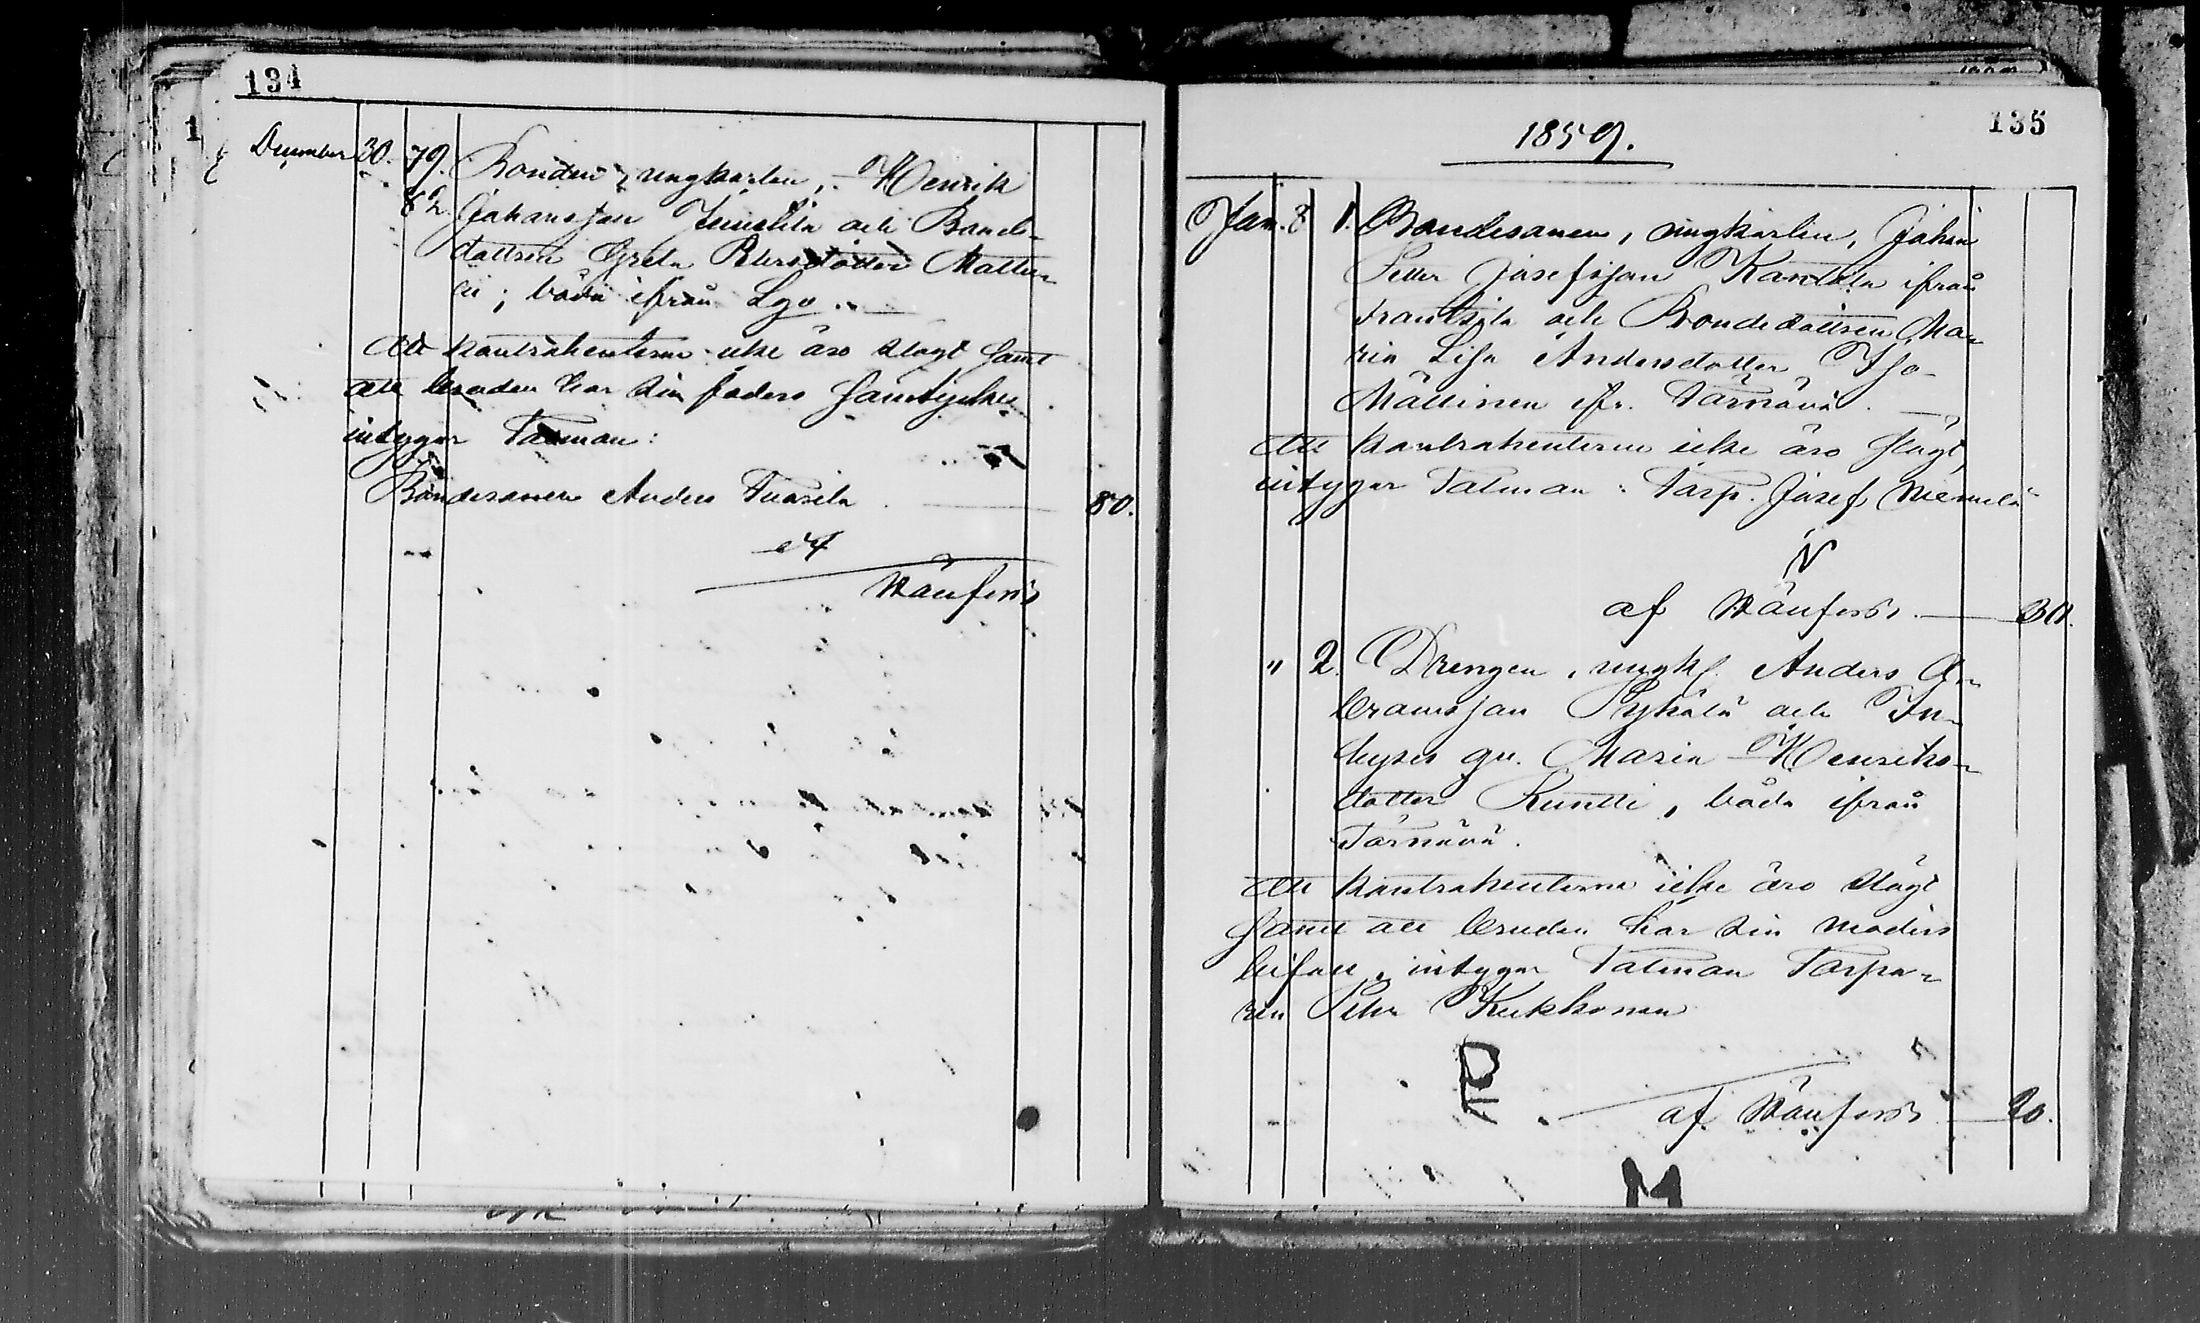 134
December 30. 79. Bonden, ungkarlen, Henrik
82. Johansson Junttila och Bonde-
dottren Greta Petersdotter Matti-
la; båda ifrån Lgo.
Att kontrahenterne icke äro slägt samt
att bruden har sin faders samtycke
intygar Talman:
Bondesonen Anders Tuasila 80.
Wänfors
135
1859.
Jan. 8 1. Bondesonen, ungkarlen, Johan
Petter Josefsson Kandela ifrån
Frantsila och Bondedottren Ma-
ria Lisa Andersdotter Iso-
Mällinen ifr. Tärnävä.
Att kontrahenterne icke äro slägt,
intygar Talman: Torp. Josef Niemelä
N
af Wänfors. 30.
" 2. Drengen, ungk. Anders A-
bramsson Pyhälä och In-
hyses qv. Maria Henriks-
dotter Kuntti, båda ifrån
Tärnävä.
Att kontrahenterne icke äro slägt
samt att bruden har sin moders
bifall, intygar Talman Torpa-
ren Petr Kukkonen
P
af Wänfors 20.
M